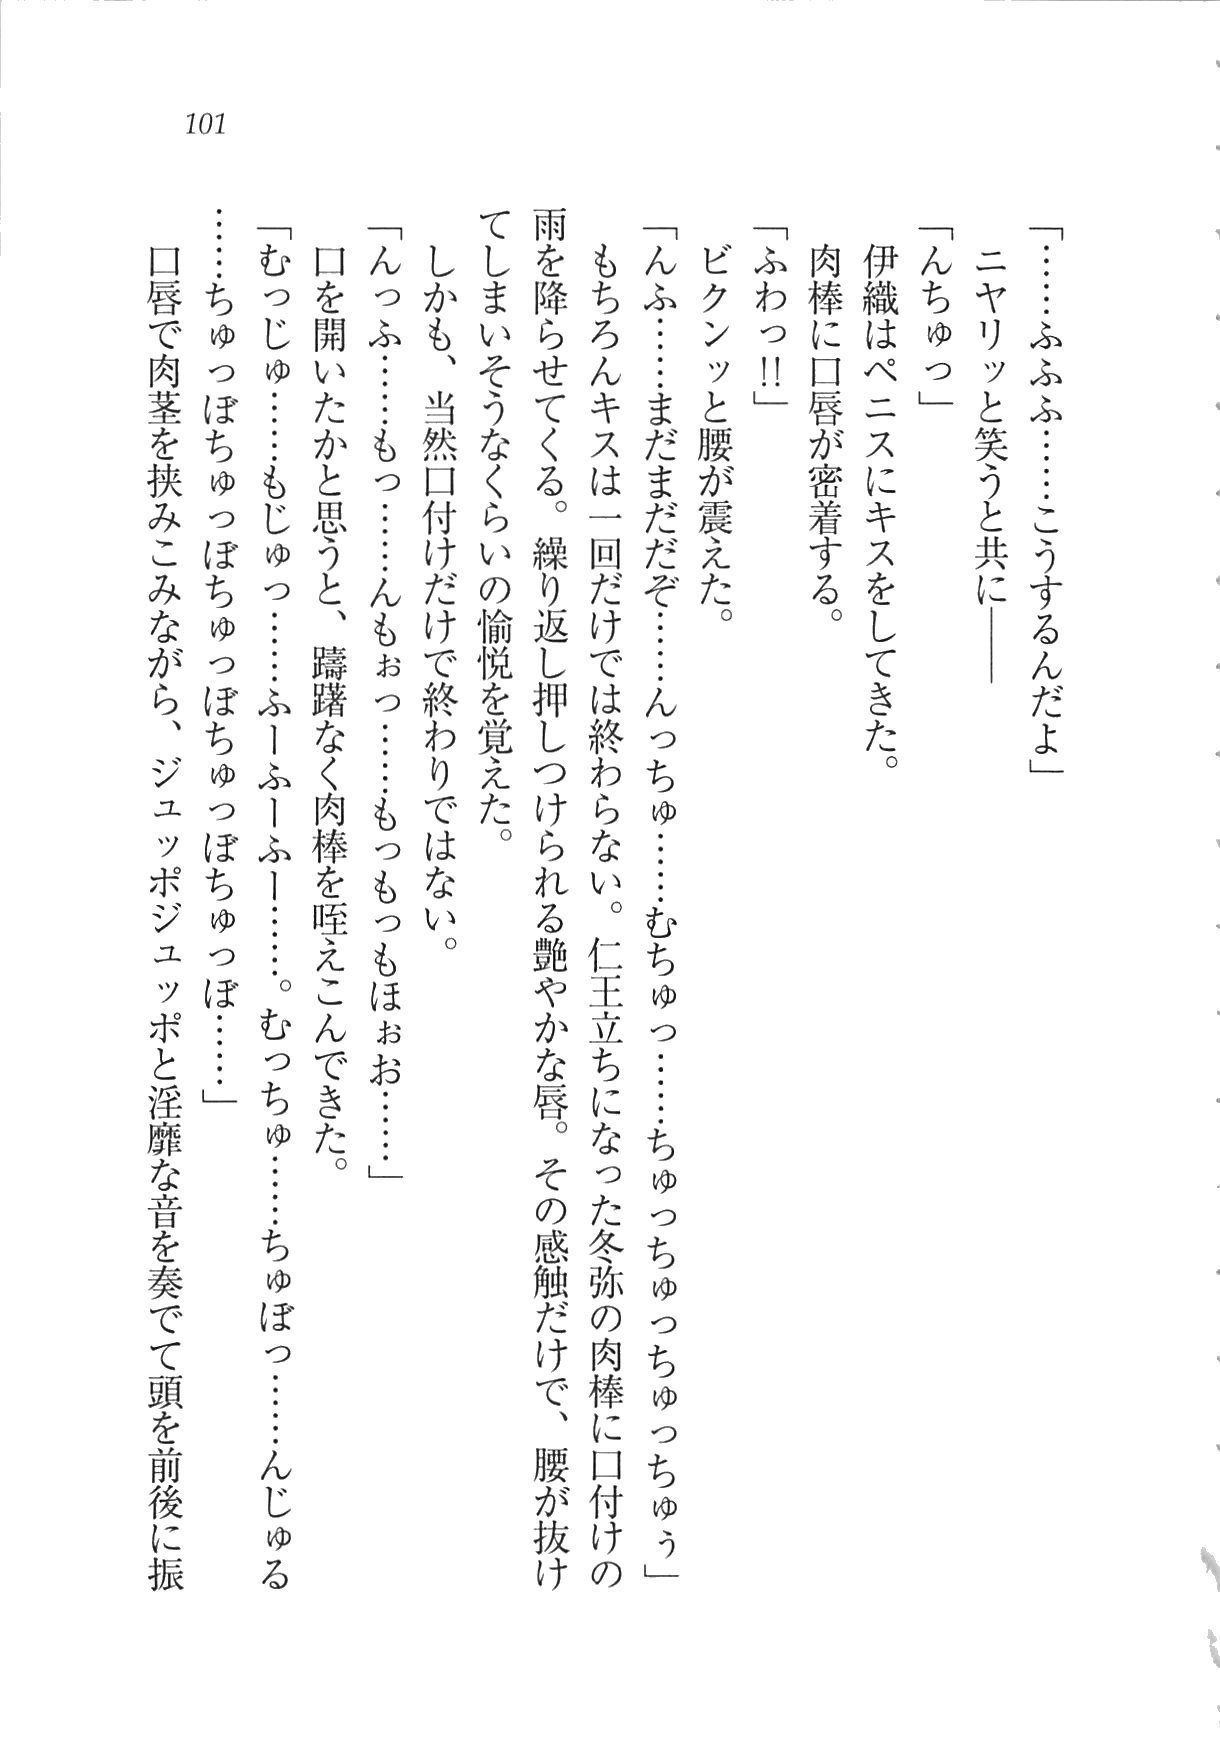 101
「……ふふふ……こうするんだよ」
ニヤリッと笑うと共に――
「んちゅっ」
伊織はペニスにキスをしてきた。
肉棒に口唇が密着する。
「ふわっ!!」
ビクンッと腰が震えた。
「んふ……まだまだだぞ……んっちゅ……むちゅっ……ちゅっちゅっちゅっちゅぅ」
もちろんキスは一回だけでは終わらない。仁王立ちになった冬弥の肉棒に口付けの
雨を降らせてくる。繰り返し押しつけられる艶やかな唇。その感触だけで、腰が抜け
てしまいそうなくらいの愉悦を覚えた。
しかも、当然口付けだけで終わりではない。
「んっふ……もっ……んもぉっ……もっもっもほぉお……」
口を開いたかと思うと、躊躇なく肉棒を咥えこんできた。
「むっじゅ……もじゅっ……ふーふーふー……。むっちゅ……ちゅぽっ……んじゅる
……ちゅっぽちゅっぽちゅっぽちゅっぽちゅっぽ……」
口唇で肉茎を挟みこみながら、ジュッポジュッポと淫靡な音を奏でて頭を前後に振